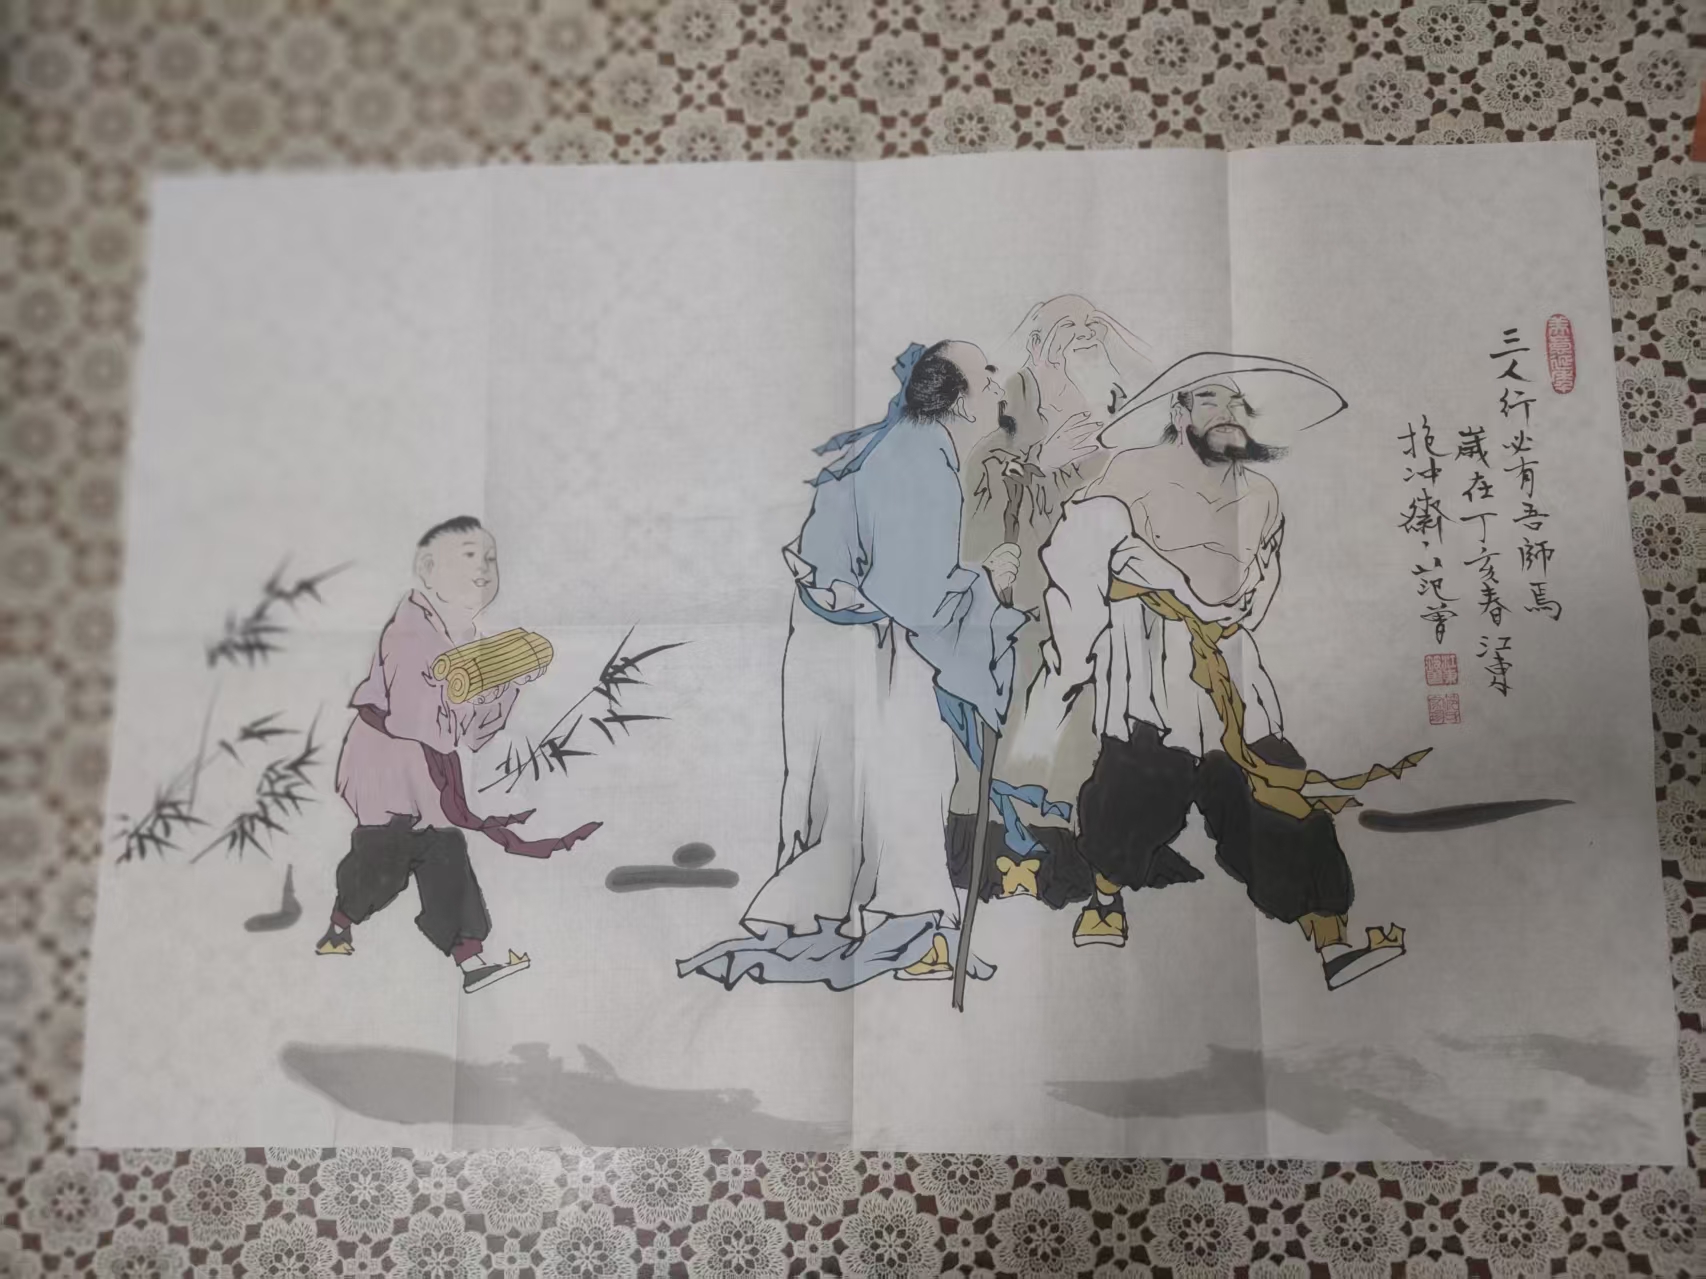 三人行必有吾師焉
歲在丁亥春江東
抱冲斋范曾